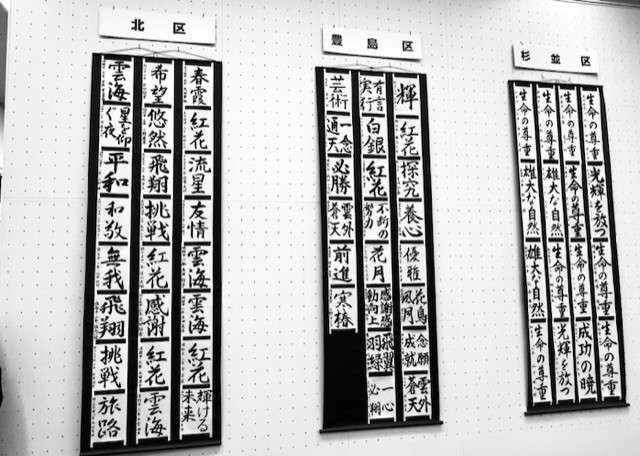 北区
春霞
紅花
流星
友情
雲海
雲海
紅花
輝ける
未来
希望
悠然
飛翔
挑戦
紅花
感謝
紅花
雲海
雲海
星を仰
ぐ夜
平和
和敬
無我
飛翔
挑戦
旅路
豊島区
輝
紅花
探究
養心
優雅
花鳥
風月
念願
成就
雲外
蒼天
有言
実行
白銀
紅花
不断の
努力
花月
感謝感
動向上
一心
芸術
一念
通天
必勝
雲外
蒼天
前進
寒椿
杉並区
生命の尊重
光輝を放つ
生命の尊重
生命の尊重
生命の尊重
生命の尊重
生命の尊重
成功の暁
生命の尊重
雄大な自然
生命の尊重
光輝を放つ
生命の尊重
雄大な自然
雄大な自然
生命の尊重